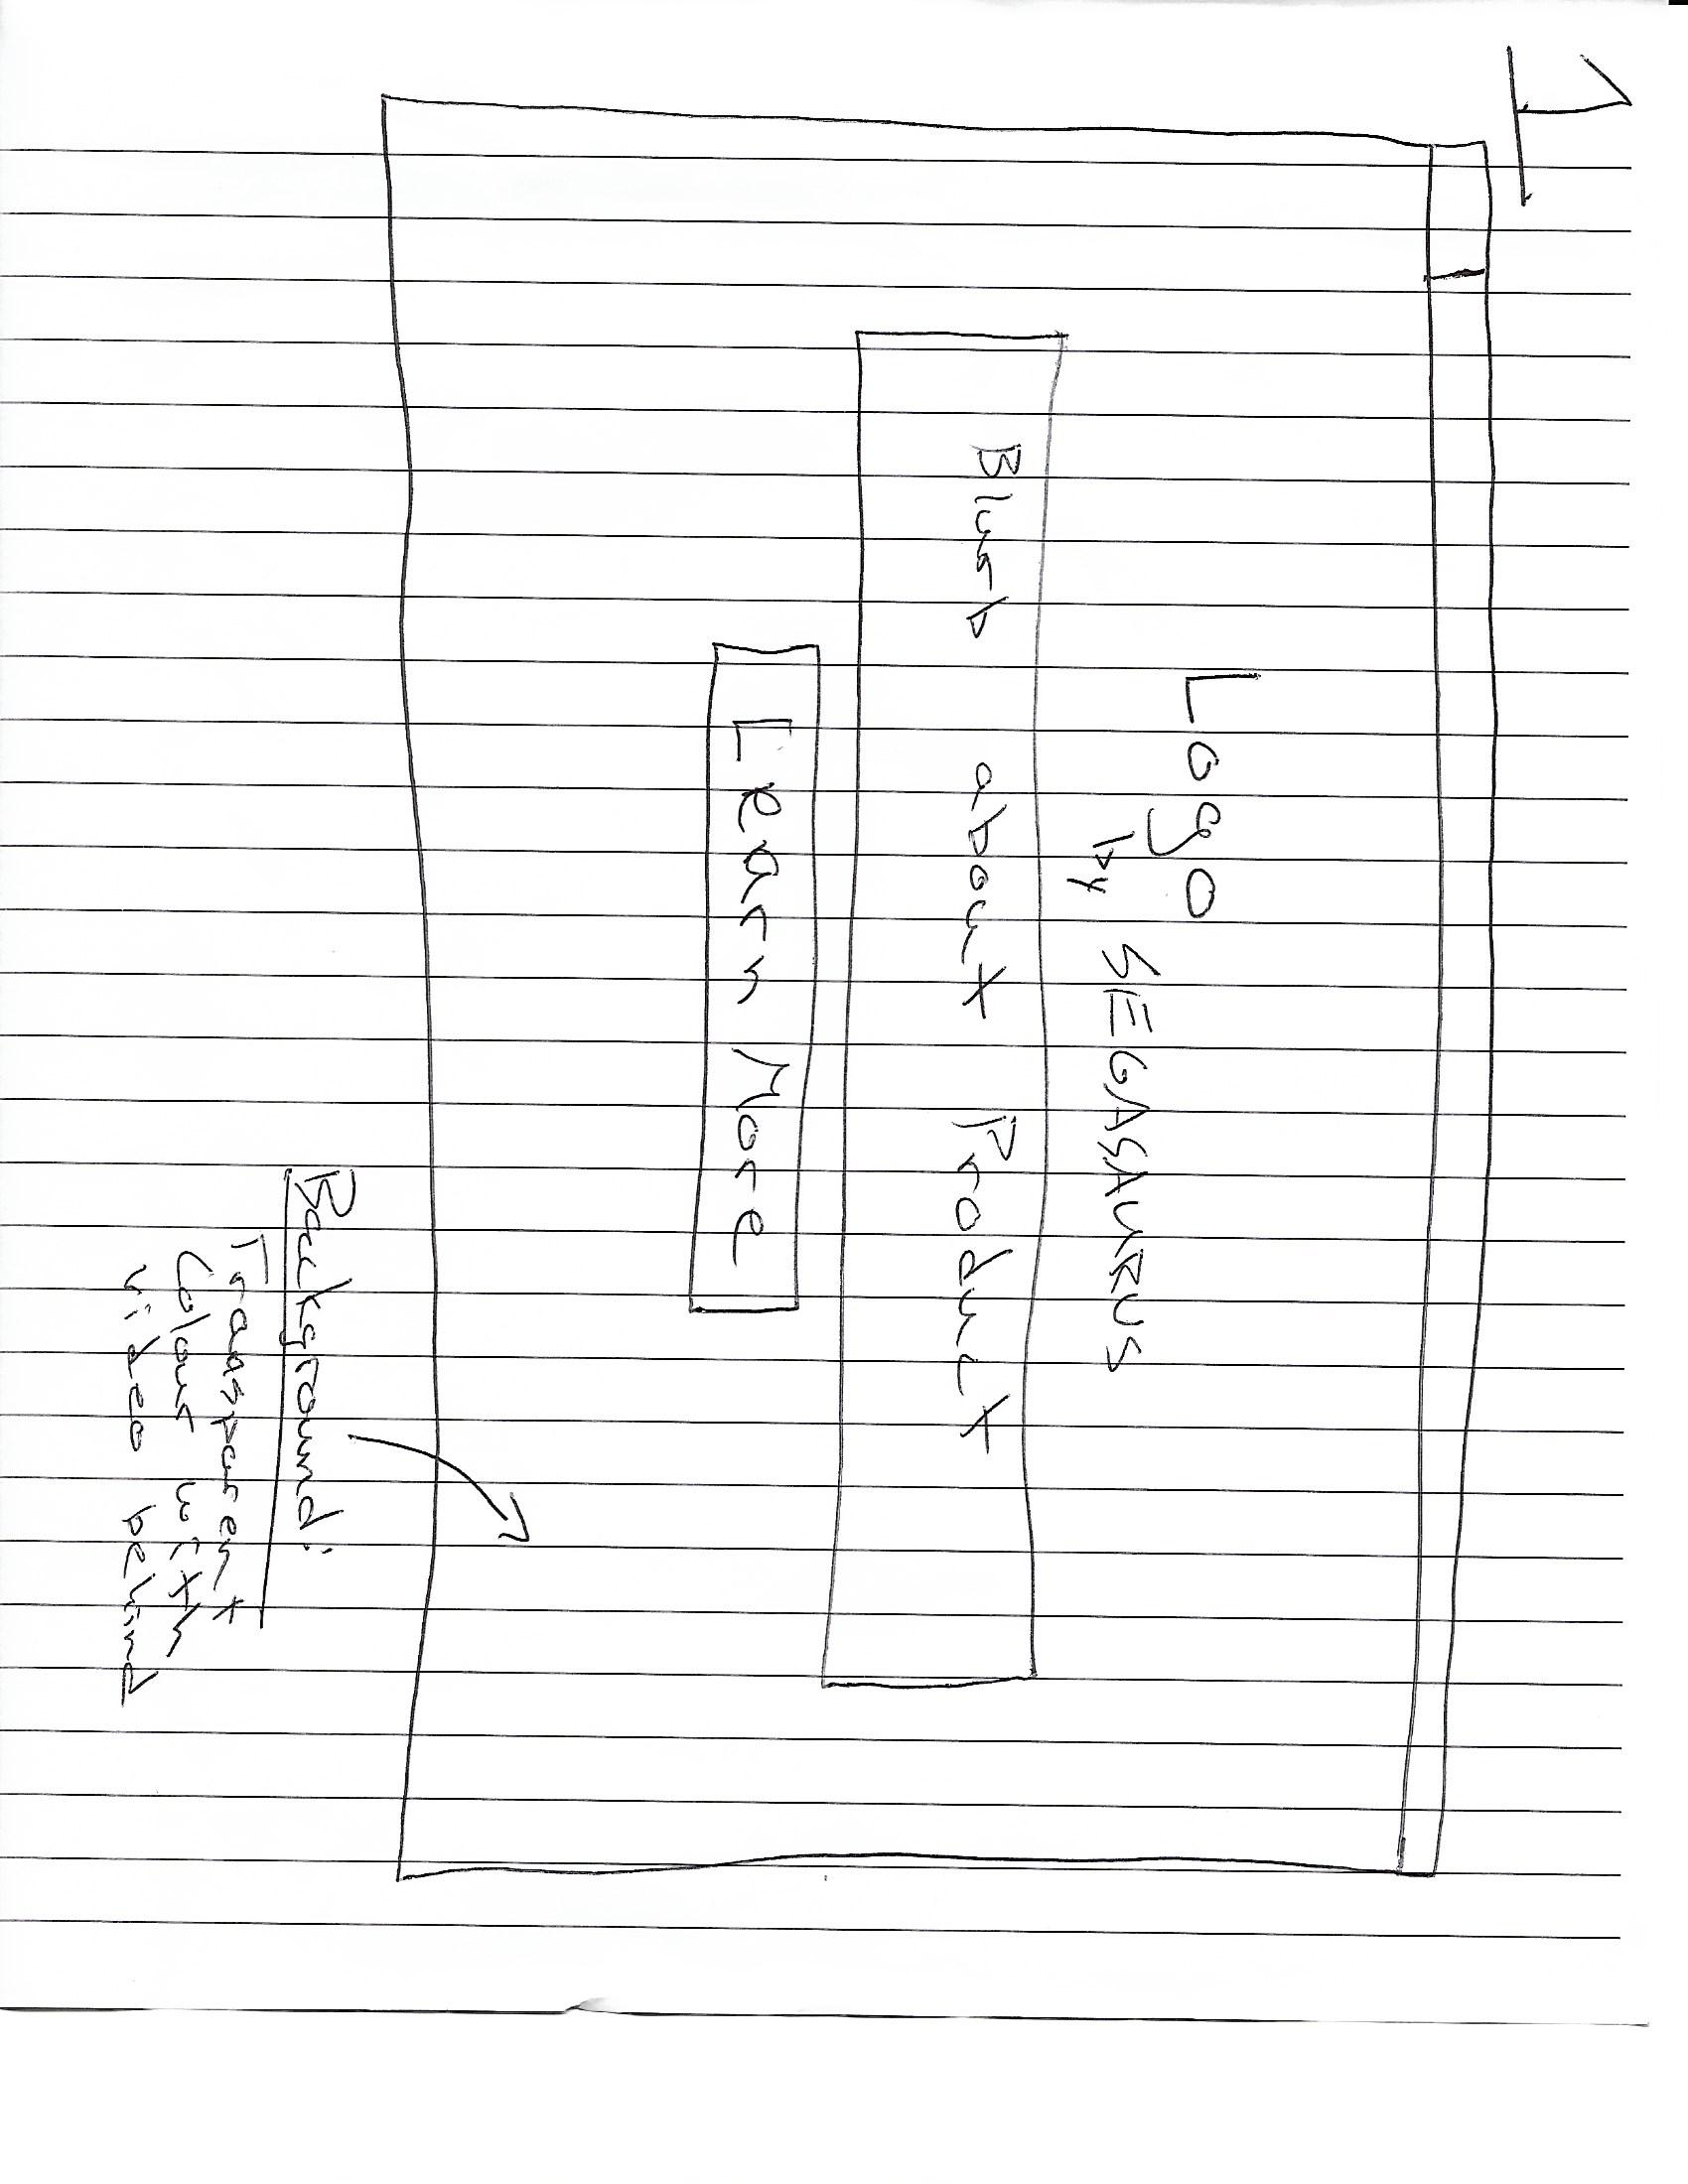 1
Logo
by SEGASAURUS
Blurb about Product
Learn More
Background:
Transparent
Colour with
video behind